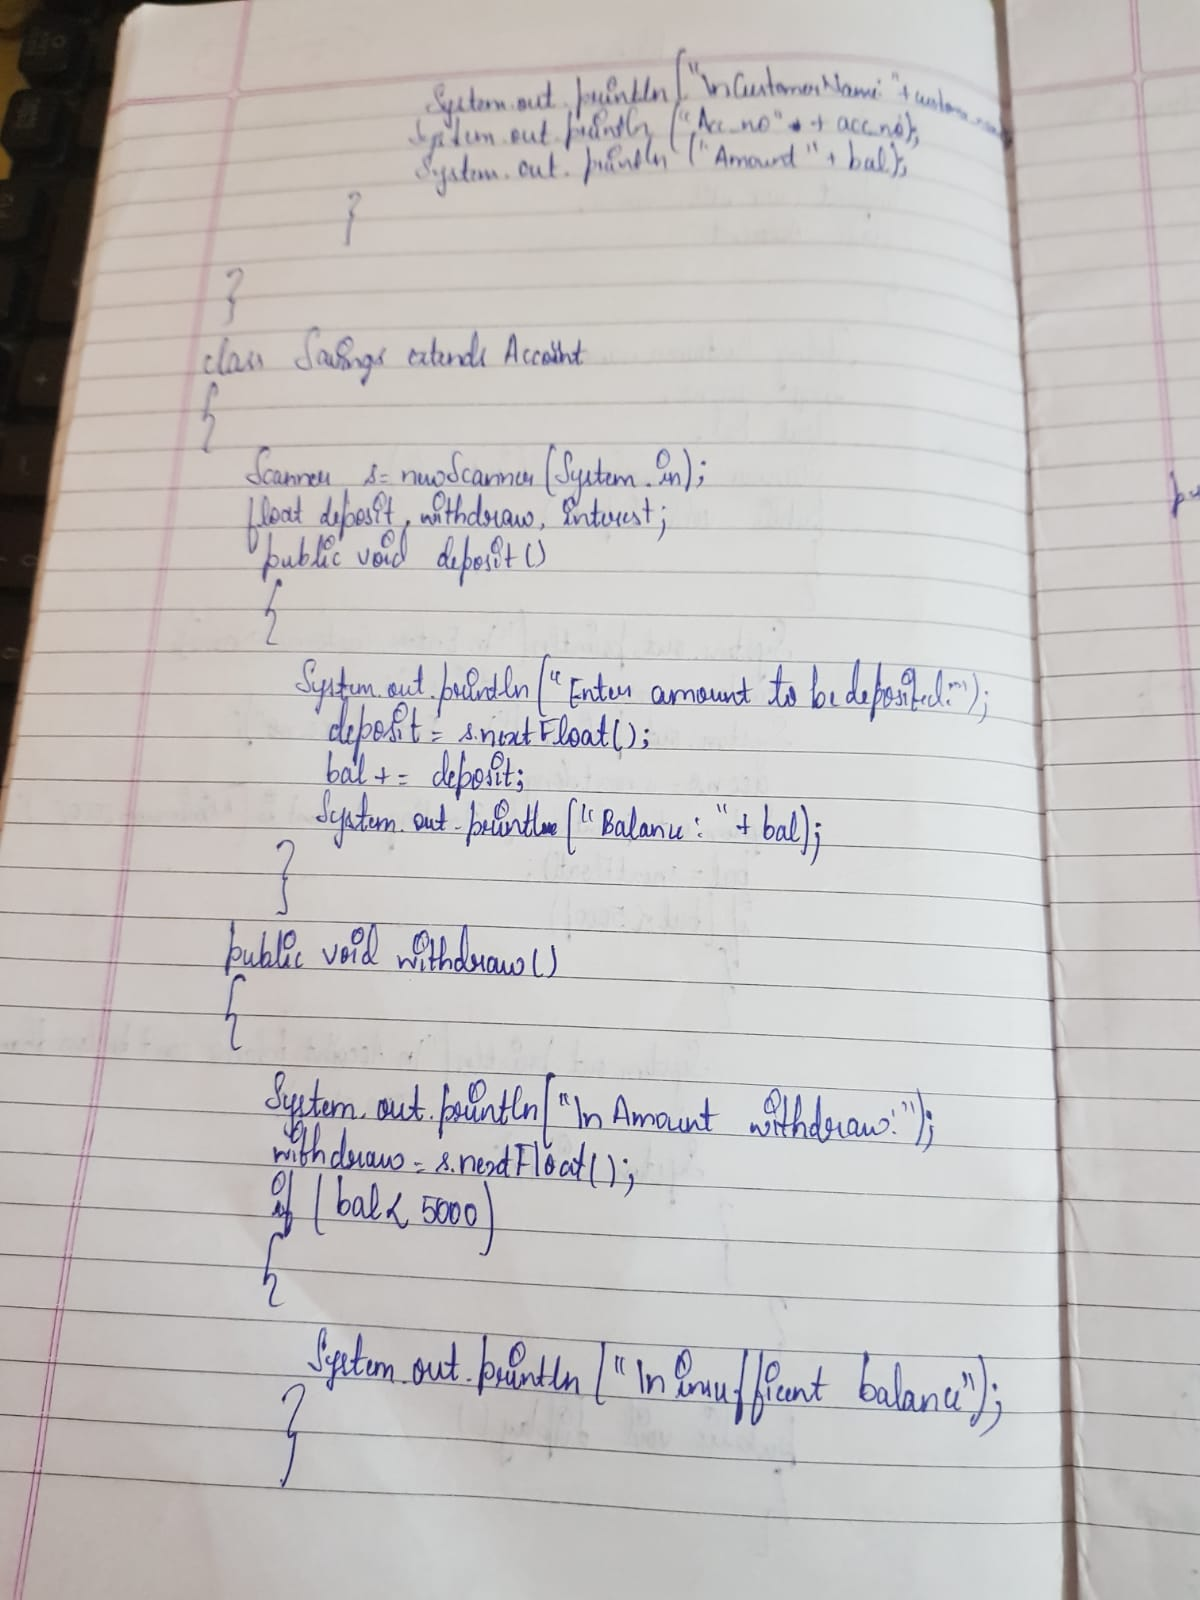 System.out.println("\nCustomerName: "+customer_name
System.out.println ("Acc_no" + acc_no);
System.out.println ("Amount" + bal);
}
}
class Savings extends Account
{
Scanner s= new Scanner (System.in);
float deposit, withdraw, interest;
public void deposit()
{
System.out.println ("Enter amount to be deposited:");
deposit = s.nextFloat();
bal += deposit;
System.out.println ("Balance: "+ bal);
}
public void withdraw()
{
System.out.println("\n Amount withdraw:");
withdraw = s.nextFloat();
if (bal < 5000)
{
System.out.println ("\n insufficient balance");
}